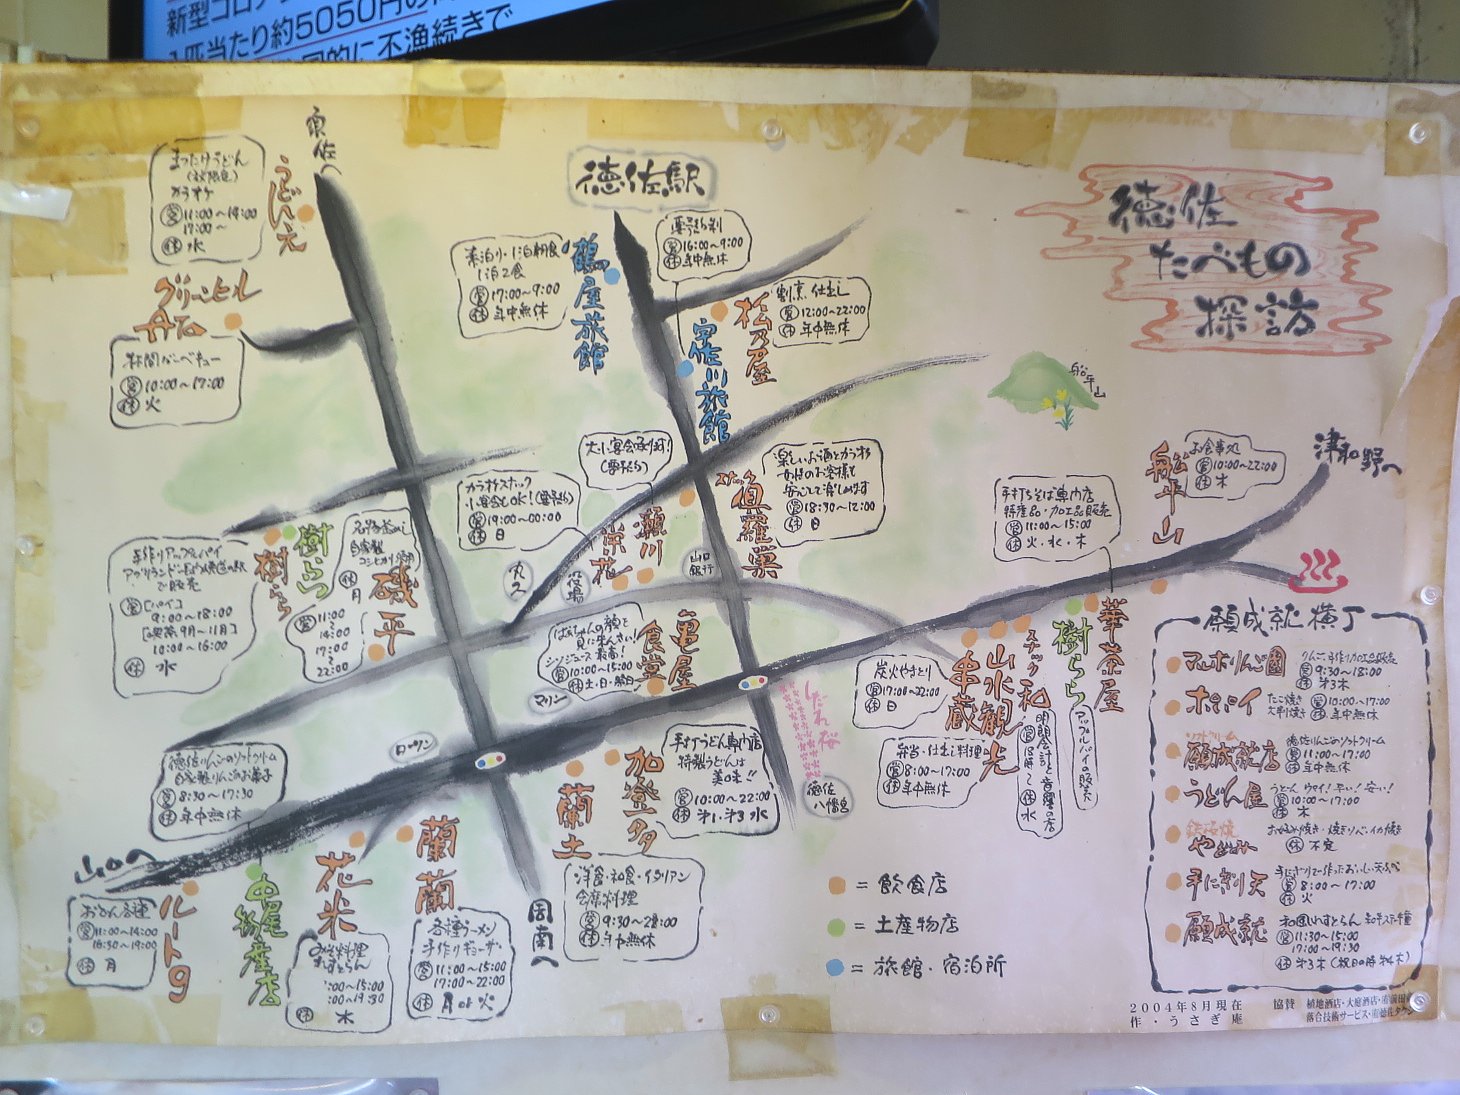 新型コロナ
1匹当たり約5050円の
的に不漁続きで
徳佐
たべもの
探訪
徳佐駅
うどん元
まつたけうどん
カラオケ
営 11:00～14:00
17:00～
休 水
グリーンヒル
営 10:00～17:00
休 火
鶴屋旅館
素泊り・1泊朝食
1泊2食
営 17:00～9:00
休 年中無休
営 16:00～9:00
休 年中無休
割烹 仕出し
営 12:00～22:00
休 年中無休
松乃屋
船平山
津和野へ
船平山
お食事処
営 10:00～22:00
休 木
手打ちそば専門店
特産品・加工品販売
営 11:00～15:00
休 火・水・木
華茶屋
樹らら
アップルパイの販売
大小宴会承ります!
(要予約)
瀬川
カラオケスナック
小宴会もOK!(要予約)
営 19:00～00:00
休 日
楽しいお酒とカラオケ
女性のお客様も
安心して楽しめます
営 18:30～12:00
休 日
スナック
真羅巣
山口
銀行
役場
丸久
樹らら
樹らら
手作りアップルパイ
9:00～18:00
10:00～16:00
休 水
磯平
休 月
営
11:00
～
14:00
17:00
～
22:00
亀屋
食堂
営 10:00～15:00
休 土・日・祝日
マリン
しだれ桜
徳佐
八幡宮
炭火やきとり
営 17:00～22:00
休 日
串蔵
山水観光
スナック和
明朗会計と音響の店
休 水
弁当・仕出し料理
営 8:00～17:00
休 年中無休
手打うどん専門店
特製うどんは
美味!!
営 10:00～22:00
休 第1・第3 水
加登多
蘭土
洋食・和食・イタリアン
会席料理
営 9:30～22:00
休 年中無休
徳佐りんごのソフトクリーム
自家製りんごのお菓子
営 8:30～17:30
休 年中無休
山口へ
ルート9
おでん各種
営 11:00～14:00
16:30～19:00
休 月
中尾物産店
花米
休 木
蘭蘭
各種ラーメン
手作りギョーザ
営 11:00～15:00
17:00～22:00
休 月or火
周南へ
= 飲食店
= 土産物店
= 旅館・宿泊所
願成就横丁
マルホりんご園
りんご、手作り加工品販売
営 9:30～18:00
休 第3木
ポパイ
たこ焼き
大判焼き
営 10:00～17:00
休 年中無休
ソフトクリーム
願成就店
徳佐りんごのソフトクリーム
営 11:00～17:00
休 年中無休
うどん屋
うどん ウマイ!早い!安い!
営 10:00～17:00
休 木
お好み焼き・焼きソバ・イカ焼き
休 不定
手にぎり天
営 8:00～17:00
休 火
願成就
営 11:30～15:00
17:00～19:30
休 第3木(祝日の時 第4木)
2004年8月現在
作・うさぎ庵
協賛